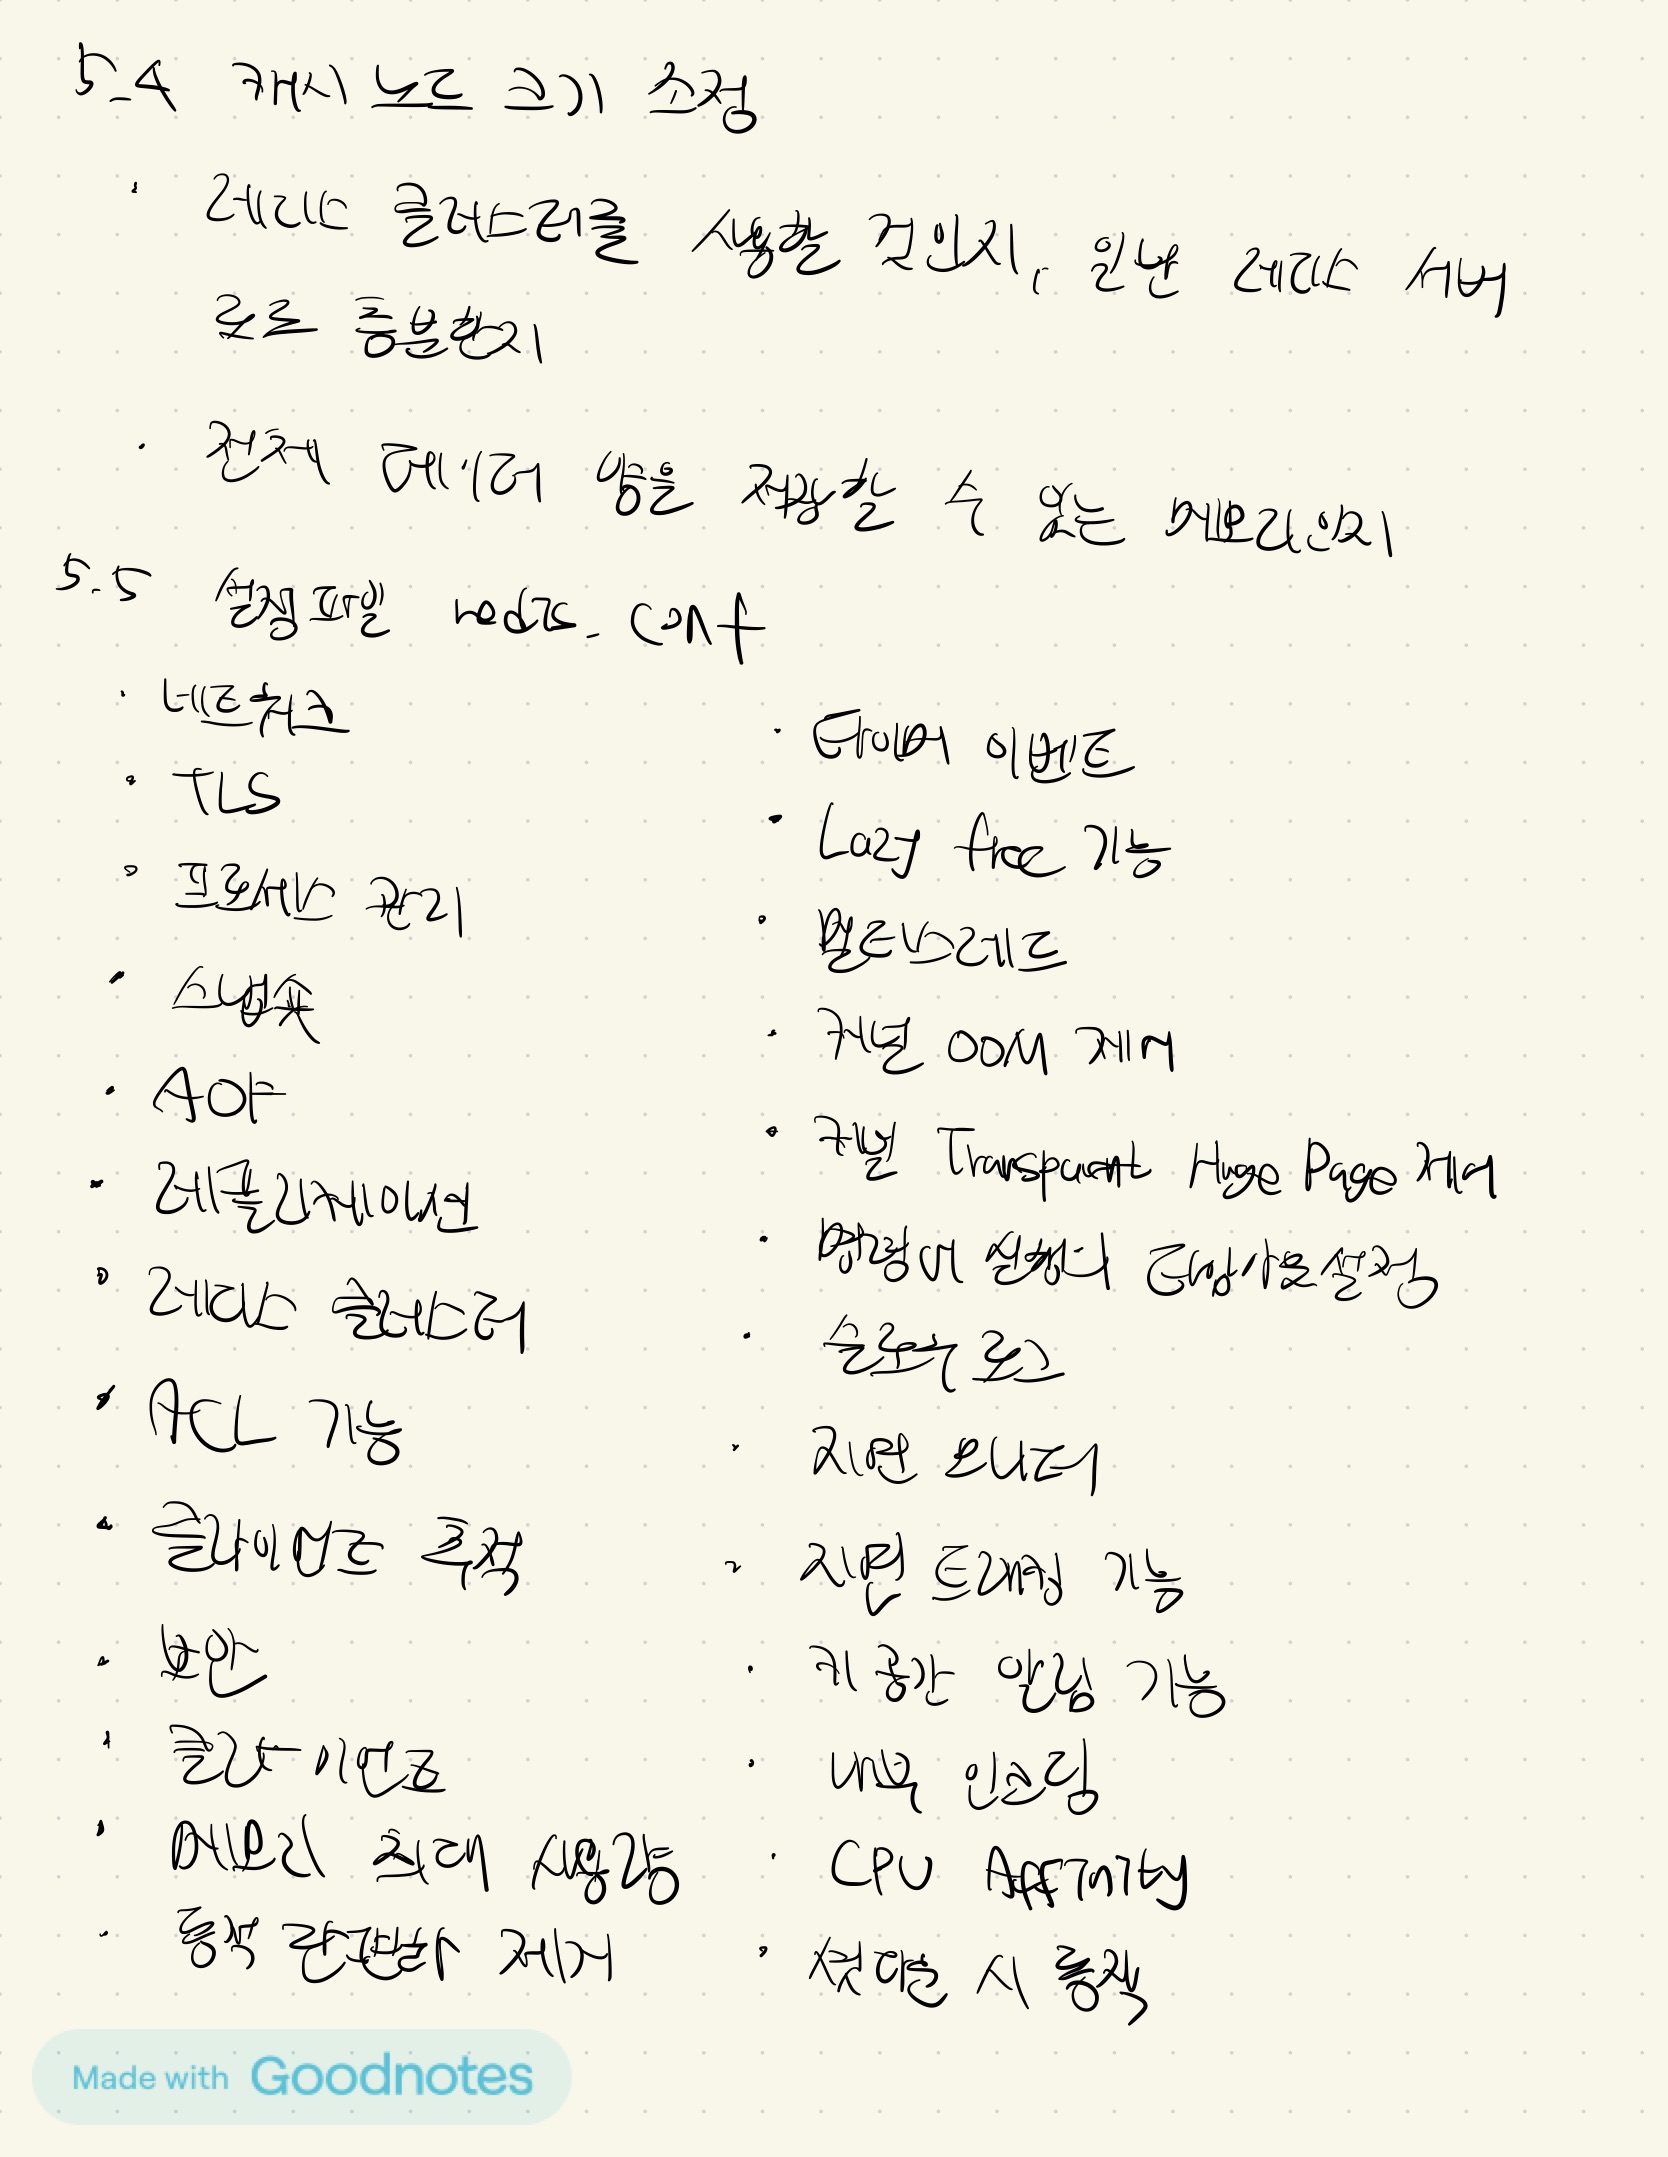 5.4 캐시 노드 크기 조정
· 레디스 클러스터를 사용할 것인지, 일반 레디스 서버
로도 충분한지
· 전체 데이터 양을 저장할 수 있는 메모리인지
5.5 설정파일 redis.conf
· 네트워크
· TLS
· 프로세스 관리
· 스냅숏
· AOF
· 레플리케이션
· 레디스 클러스터
· ACL 기능
· 클라이언트 추적
· 보안
· 클라이언트
· 메모리 최대 사용량
· 동적 단편화 제거
· 타이머 이벤트
· Lazy free 기능
· 멀티스레드
· 커널 OOM 제어
· 커널 Transparent Huge Page 제어
· 명령어 실행의 타임아웃 설정
· 슬로우 로그
· 지연 모니터
· 지연 트래킹 기능
· 키 공간 알림 기능
· 내부 인코딩
· CPU Affinity
· 셧다운 시 동작
Made with Goodnotes